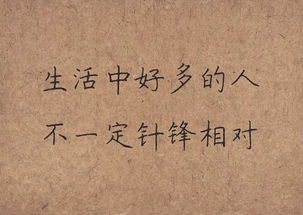 生活中好多的人
不一定针锋相对